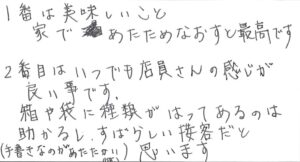 1番は美味しいこと
家であたためなおすと最高です
2番目はいつでも店員さんの感じが
良い事です。
箱や袋に種類がはってあるのは
助かるし、すばらしい接客だと
(手書きなのがあたたかい) 思います